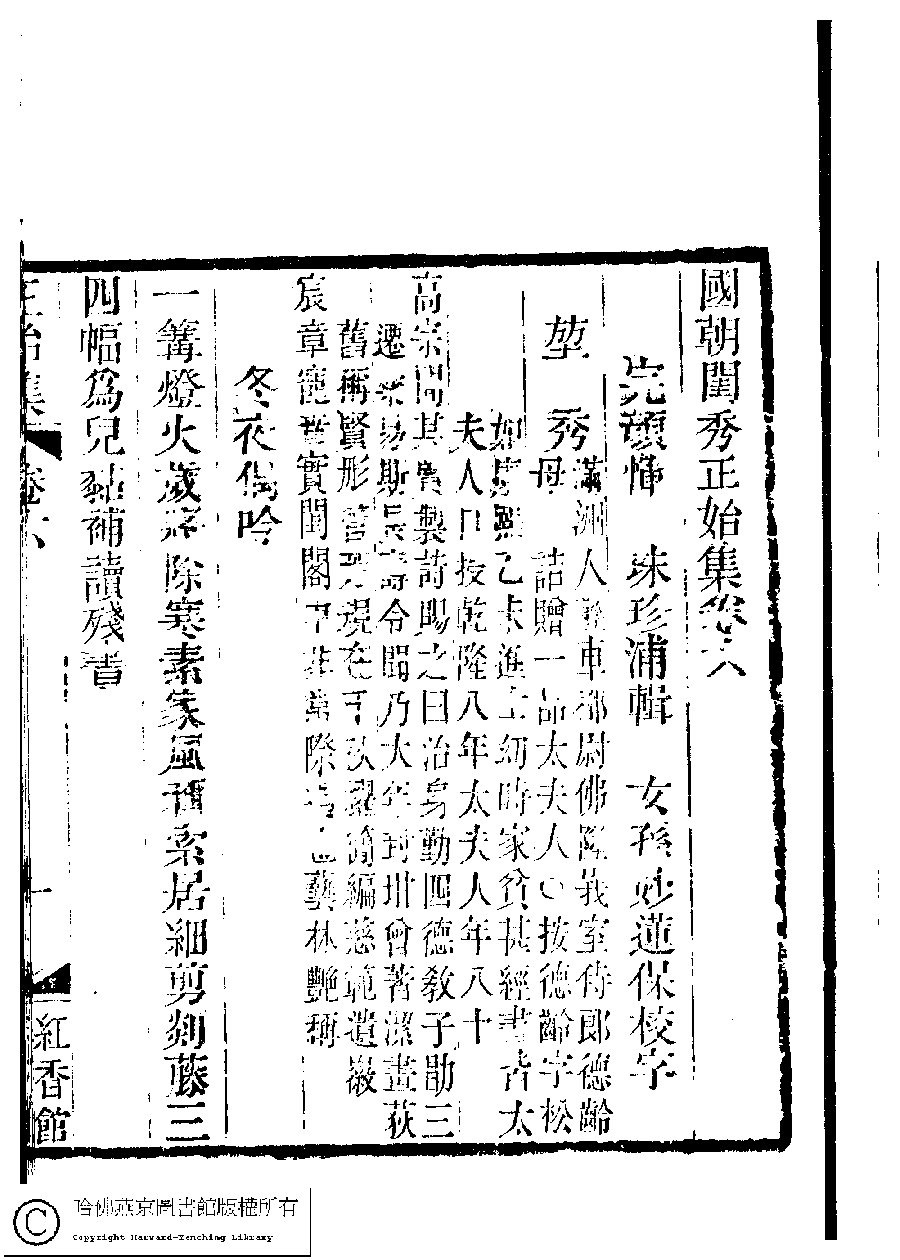 國朝閨秀正始集卷六
完顏惲　珠珍浦輯　女孫妙蓮保校字
堃　秀滿洲人輕車都尉佛隆義室侍郎德齡
母　誥贈一品太夫人○按德齡字松
如康熙乙未進士幼時家貧甚經書皆太
夫人口授乾隆八年太夫人年八十
高宗問其賢製詩賜之曰治身勤四德教子勖三
遷眾易斯長壽令聞乃大年封坩會菁潔畫荻
舊稱賢形管芳規在千秋耀簡編慈範遺徽
宸章寵賁實閨閣中非常際遇也藝林艷稱
冬夜偶吟
一篝燈火歲將除寒素家風稱索居細剪剡藤三
四幅爲兒黏補讀殘書
正始集
卷六
一
紅香館
哈佛燕京圖書館版權所有
Copyright Harvard-Yenching Library